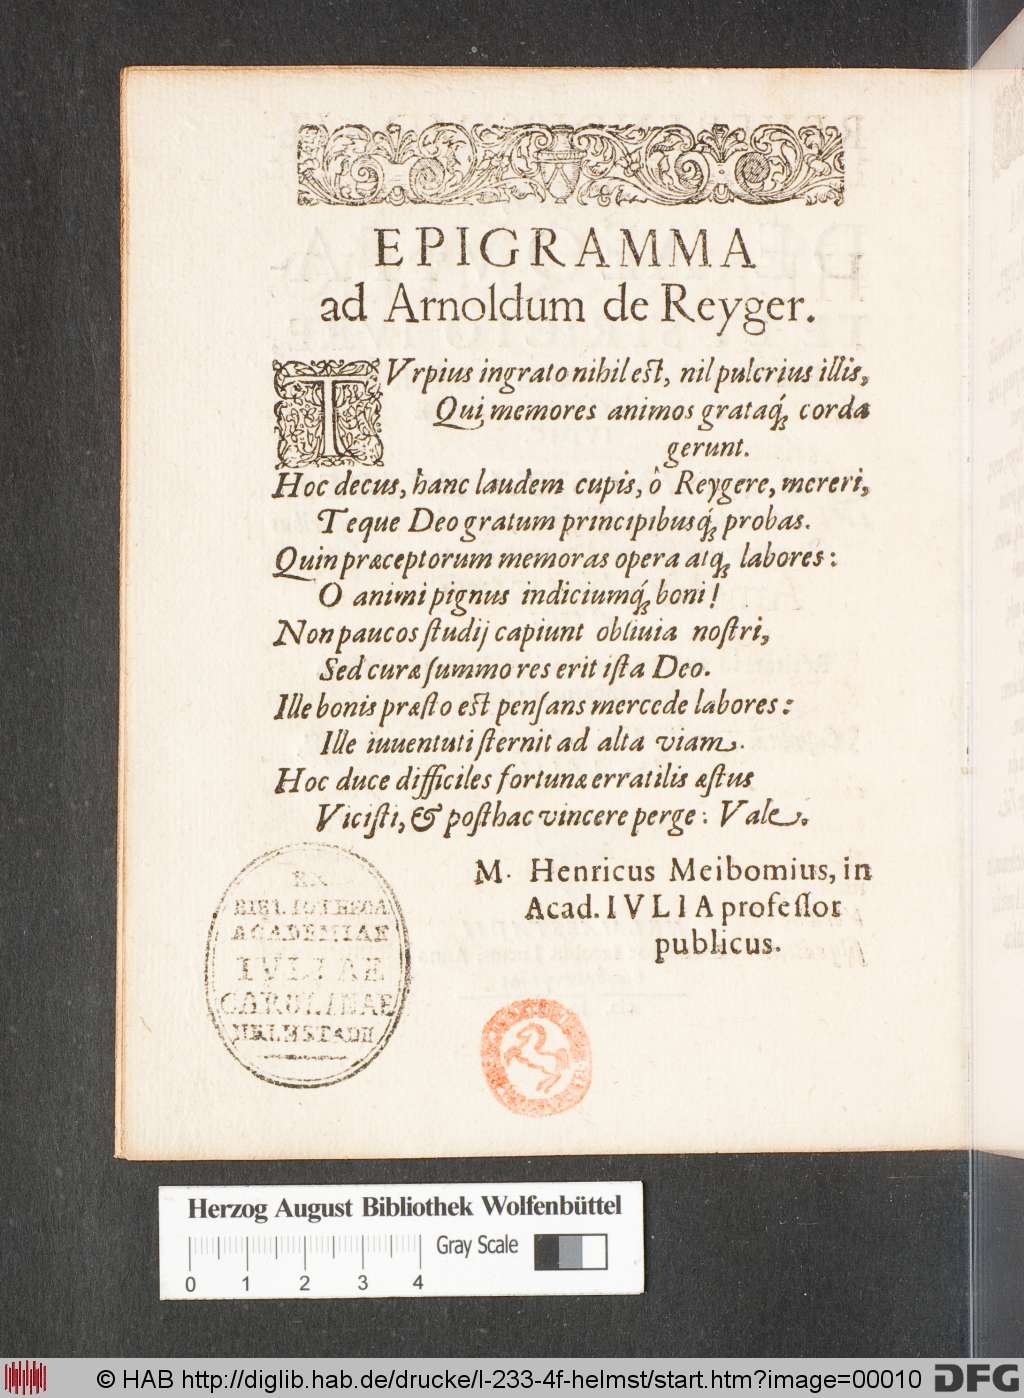 EPIGRAMMA
ad Arnoldum de Reyger.
TVrpius ingrato nihil est, nil pulcrius illis,
Qui memores animos grataq́; corda
gerunt.
Hoc decus, hanc laudem cupis, ô Reygere, mereri,
Teque Deo gratum principibusq́; probas.
Quin præceptorum memoras opera atq; labores:
O animi pignus indiciumq́; boni!
Non paucos ſtudij capiunt obliuia noſtri,
Sed curæ ſummo res erit iſta Deo.
Ille bonis præſto est penſans mercede labores:
Ille iuuentuti ſternit ad alta viam.
Hoc duce difficiles fortunæ erratilis æſtus
Viciſti, & poſthac vincere perge: Vale.
M. Henricus Meibomius, in
Acad. IVLIA profeſſor
publicus.
EX
BIBLIOTHECA
ACADEMIAE
IVLIAE
CAROLINAE
HELMSTADII
Herzog August Bibliothek Wolfenbüttel
Gray Scale
0 1 2 3 4
© HAB http://diglib.hab.de/drucke/l-233-4f-helmst/start.htm?image=00010
DFG